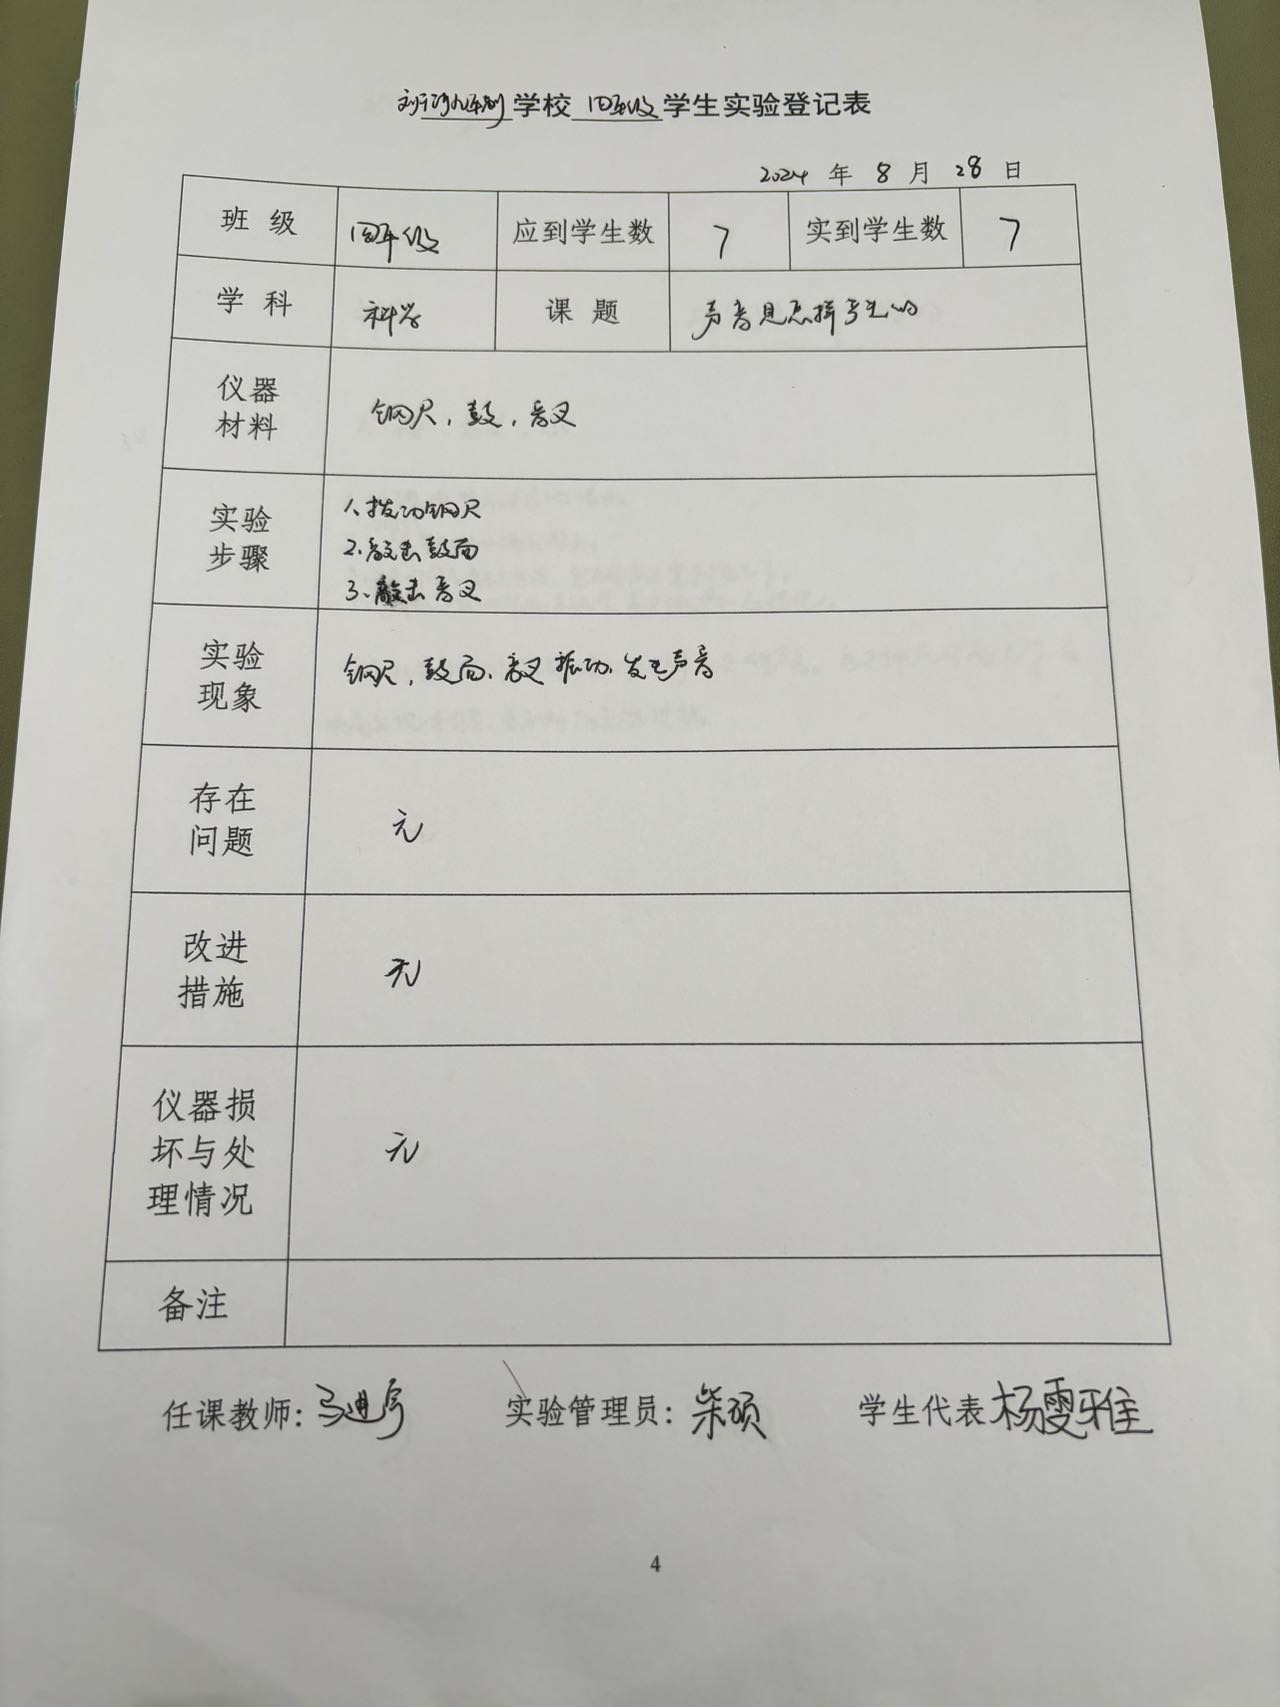 刘河九年制学校 四年级 学生实验登记表
2024 年 8 月 28 日
班 级 四年级 应到学生数 7 实到学生数 7
学 科 科学 课 题 声音是怎样产生的
仪器
材料
钢尺，鼓，音叉
实验
步骤
1、拨动钢尺
2、敲击鼓面
3、敲击音叉
实验
现象
钢尺，鼓面、音叉振动，发生声音
存在
问题
无
改进
措施
无
仪器损
坏与处
理情况
无
备注
任课教师：马进宇 实验管理员：柴硕 学生代表 杨雯雅
4